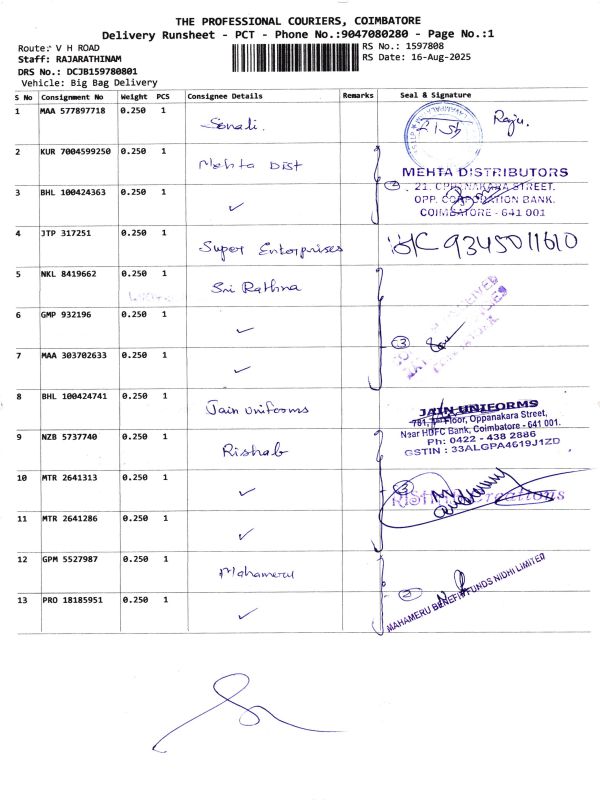 THE PROFESSIONAL COURIERS, COIMBATORE
Delivery Runsheet - PCT - Phone No.:9047080280 - Page No.:1
Route: V H ROAD
RS No.: 1597808
Staff: RAJARATHINAM
RS Date: 16-Aug-2025
DRS No.: DCJB159780801
Vehicle: Big Bag Delivery
S No Consignment No Weight PCS Consignee Details Remarks Seal & Signature
1 MAA 577897718 0.250 1 Sonali. Raju.
2 KUR 7004599250 0.250 1 Mehta Dist
MEHTA DISTRIBUTORS
3 BHL 100424363 0.250 1 ✓ 2
21, OPPANAKARA STREET.
OPP. CORPORATION BANK.
COIMBATORE - 641 001
4 JTP 317251 0.250 1 Super Enterprises 9345011610
5 NKL 8419662 0.250 1 Sri Rathna
6 GMP 932196 0.250 1 ✓
7 MAA 303702633 0.250 1 ✓ 3
8 BHL 100424741 0.250 1 Jain Uniforms
JAIN UNIFORMS
Floor, Oppanakara Street,
Near HDFC Bank, Coimbatore - 641 001.
Ph: 0422 - 438 2886
GSTIN : 33ALGPA4619J1ZD
9 NZB 5737740 0.250 1 Rishab
10 MTR 2641313 0.250 1 ✓ 3
Creations
11 MTR 2641286 0.250 1 ✓
12 GPM 5527987 0.250 1 Mahameru
13 PRO 18185951 0.250 1 ✓ 2
MAHAMERU BENEFIT FUNDS NIDHI LIMITED